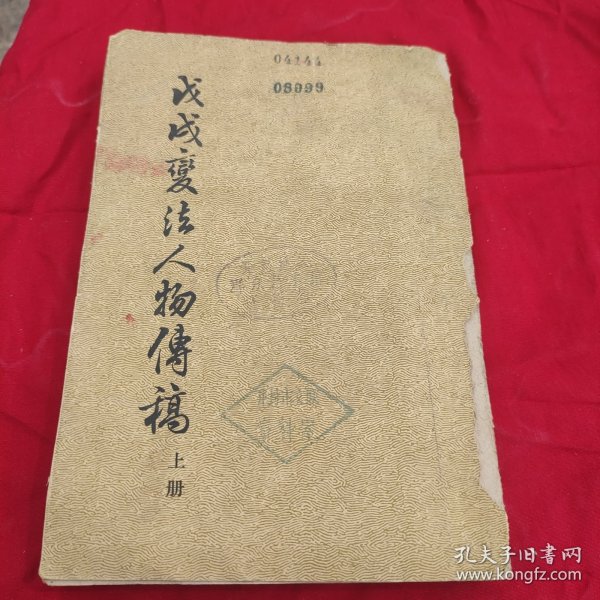 04144
08999
戊戌變法人物傳稿
上册
資料室
孔夫子旧書网
www.kongfz.com